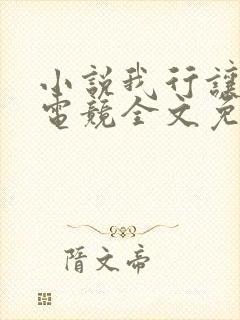 小說我行讓
電競全文免
隋文帝